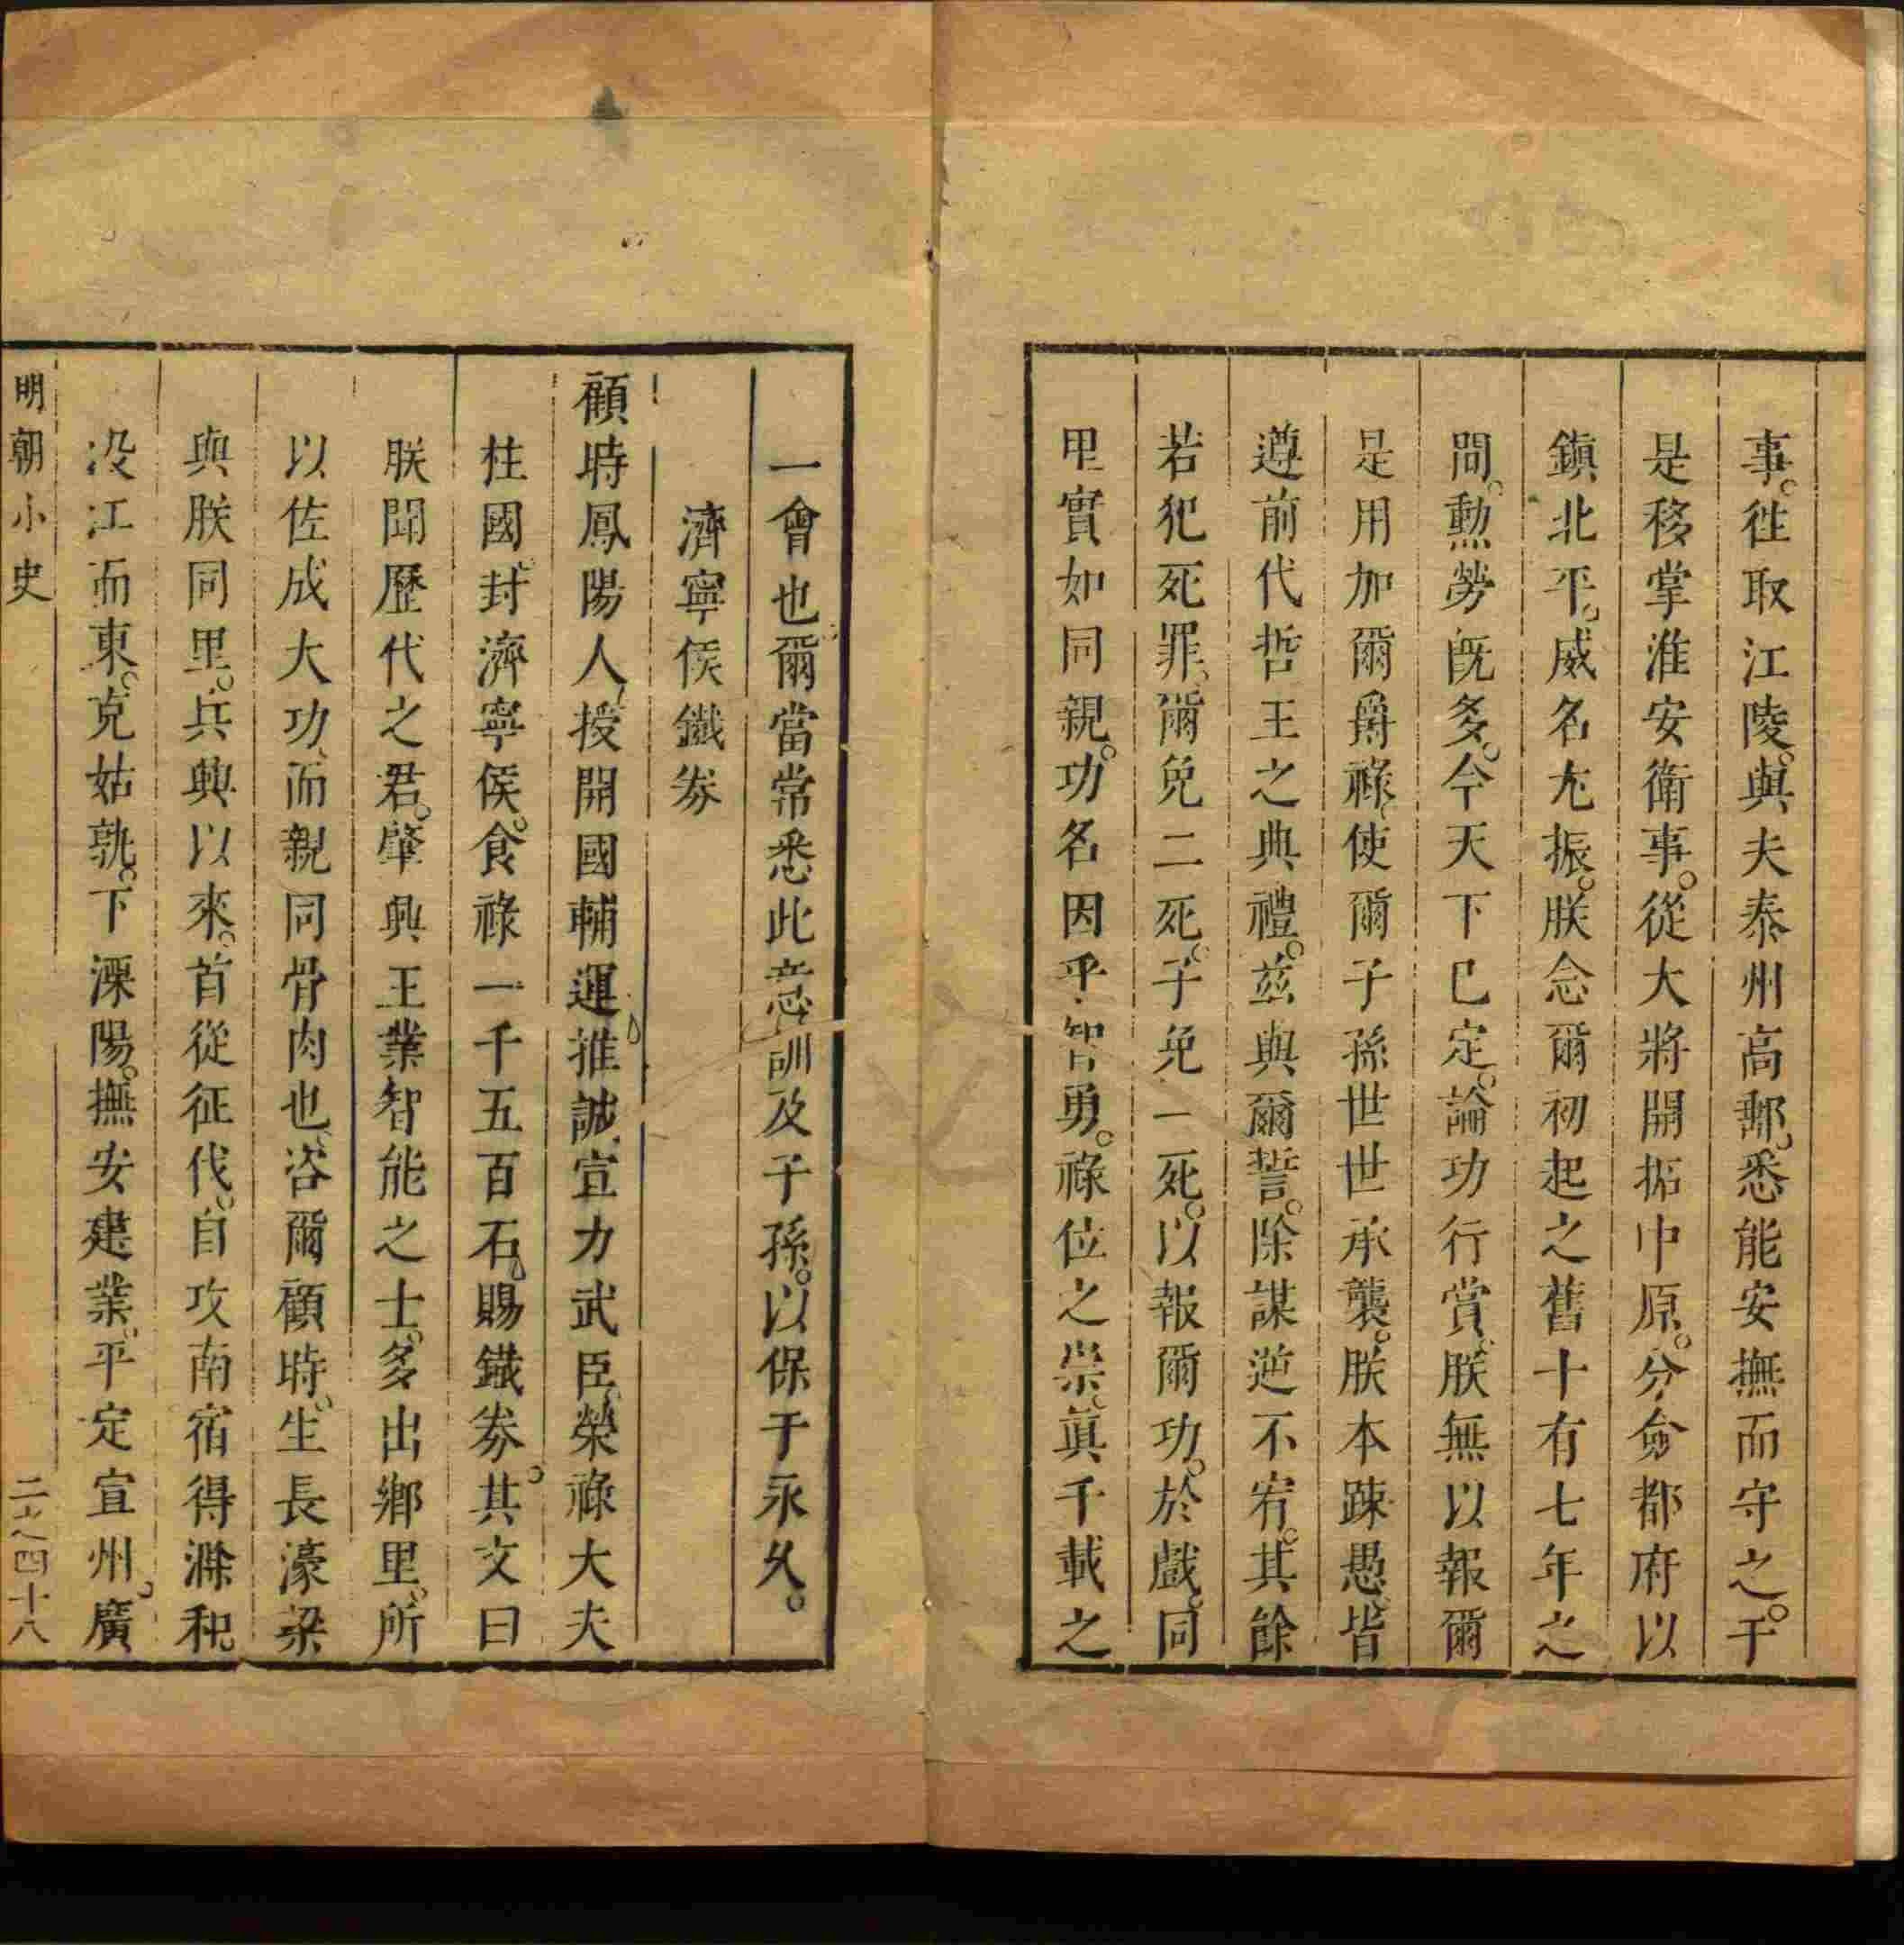 事。徃取江陵。與夫泰州高郵。悉能安撫而守之。于
是移掌淮安衛事。從大將開拓中原。分僉都府以
鎭北平。威名尢振。朕念爾初起之舊十有七年之
間。勲勞旣多。今天下巳定。論功行賞。朕無以報爾
是用加爾爵祿、使爾子孫世世承襲。朕本踈愚、皆
遵前代哲王之典禮。茲與爾誓。除謀逆不宥。其餘
若犯死罪。爾免二死。子免一死。以報爾功。於戲。同
里實如同親。功名因乎智勇。祿位之崇。眞千載之
一會也。爾當常悉此意訓及于孫。以保于永久。
濟寧侯鐵券
顧時鳳陽人、授開國輔運推誠宣力武臣、榮祿大夫
柱國。封濟寧侯。食祿一千五百石。賜鐵券。其文曰
朕聞歷代之君。肇興王業智能之士。多出鄉里。所
以佐成大功、而親同骨肉也、咨爾顧時。生長濠梁
與朕同里。兵興以來。首從征伐。自攻南宿得滁和
没江而東。克姑孰。下溧陽。撫安建業。平定宣州。廣
明朝小史
二 四十八